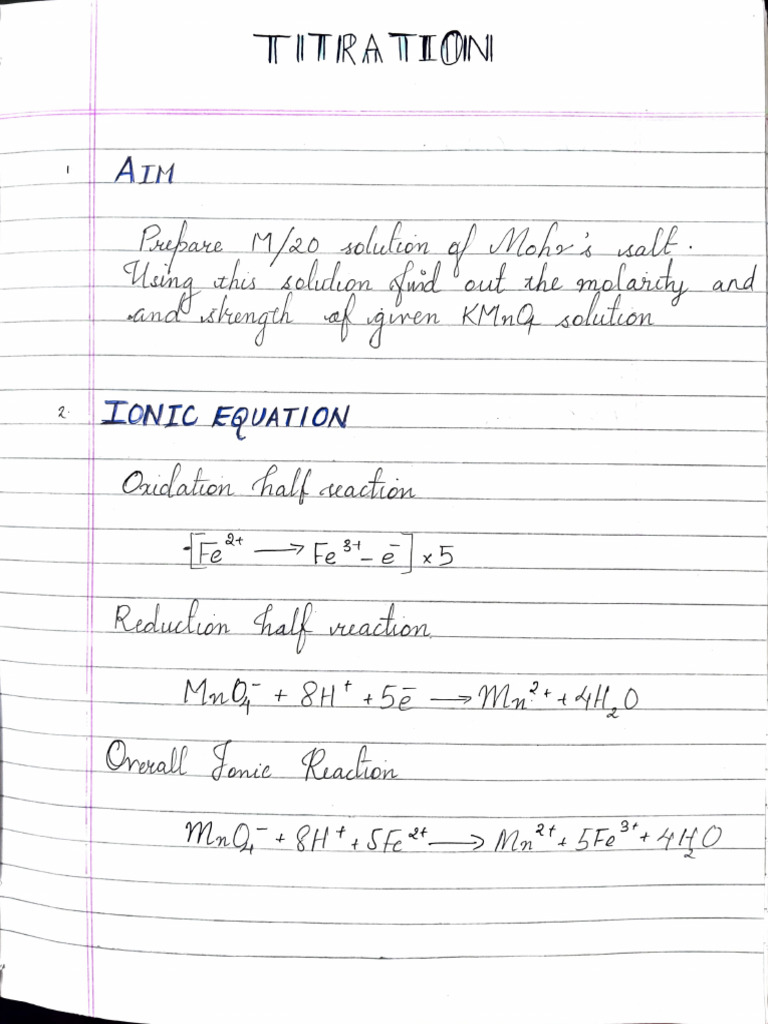 TITRATION
1 AIM
Prepare M/20 solution of Mohr's salt.
Using this solution find out the molarity and
and strength of given KMnO4 solution
2. IONIC EQUATION
Oxidation half reaction
[Fe²⁺ → Fe³⁺ - e⁻] × 5
Reduction half reaction
MnO₄⁻ + 8H⁺ + 5e⁻ → Mn²⁺ + 4H₂O
Overall Ionic Reaction
MnO₄⁻ + 8H⁺ + 5Fe²⁺ → Mn²⁺ + 5Fe³⁺ + 4H₂O